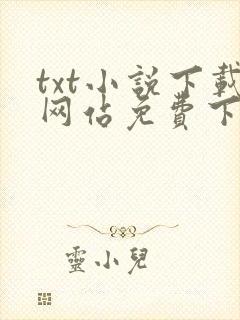 txt小說下載
网站免費下
靈小兒